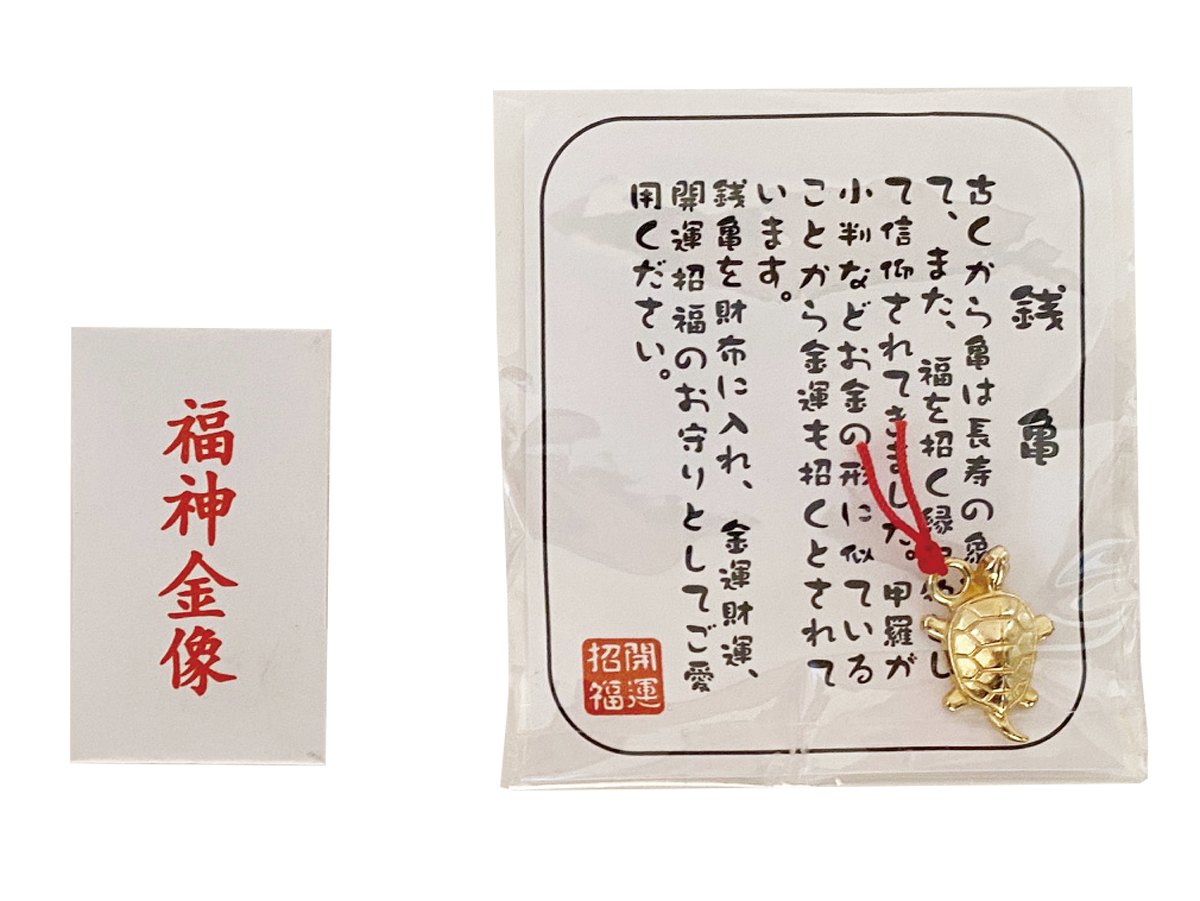 福神金像
銭亀
古くから亀は長寿の象
て、また、福を招く縁
て信仰されてきました。甲羅が
小判などお金の形に似ている
ことから金運も招くとされて
います。
銭亀を財布に入れ、金運財運、
開運招福のお守りとしてご愛
用ください。
開運
招福